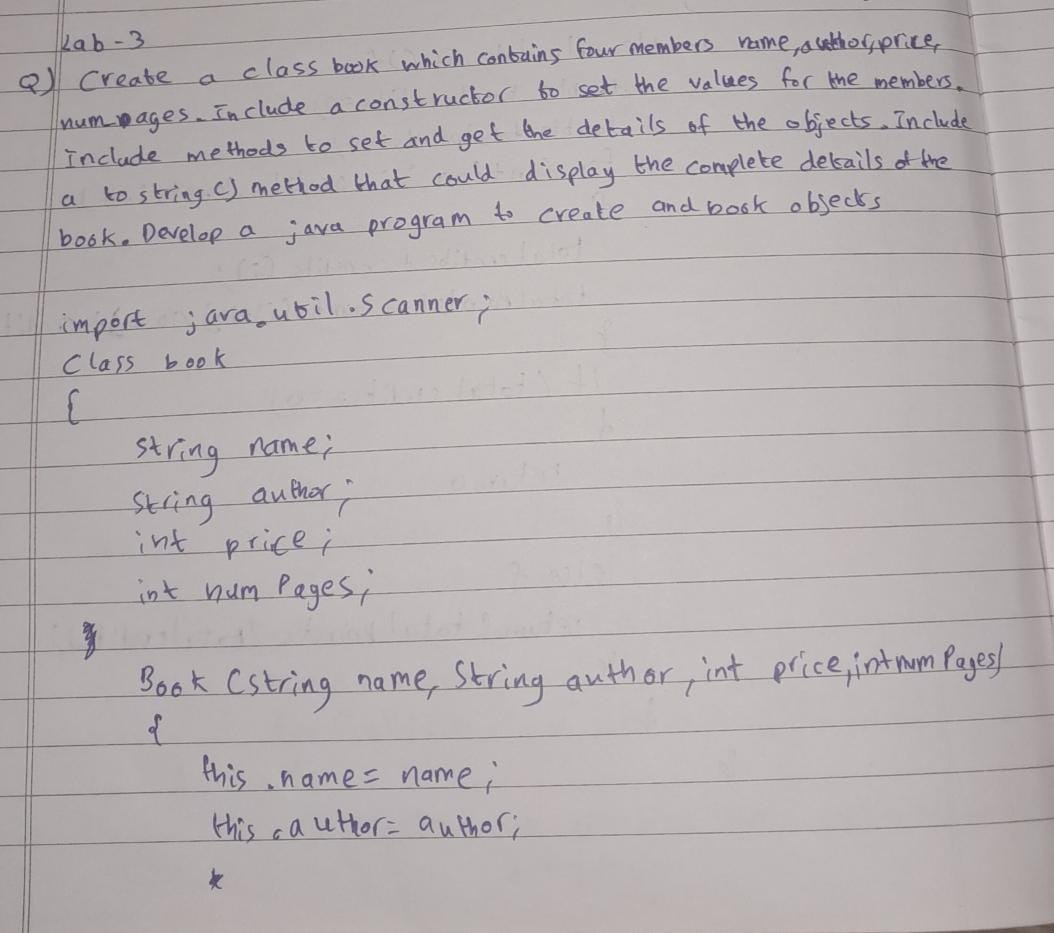 Lab-3
Q) Create a class book which contains four members name, author, price,
num pages. Include a constructor to set the values for the members.
Include methods to set and get the details of the objects. Include
a to string() method that could display the complete details of the
book. Develop a java program to create and book objects
import java.util.Scanner;
Class book
{
string name;
String author;
int price;
int num Pages;
Book (String name, String author, int price, int num Pages)
{
this.name = name;
this.author = author;